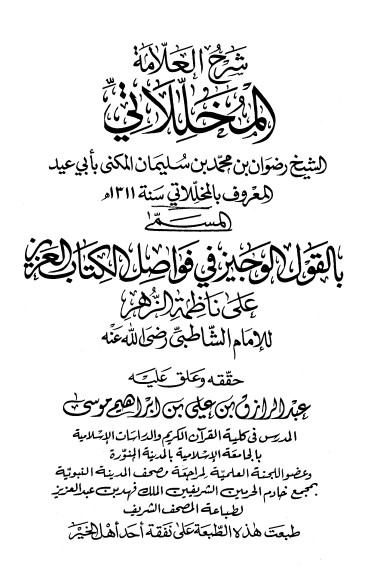 شرح العلامة
المخللاتي
الشيخ رضوان بن محمد بن سليمان المكنى بأبي عيد
المعروف بالمخللاتي سنة ١٣١١هـ
المسمى
بالقول الوجيز في فواصل الكتاب العزيز
على ناظمة الزهر
للإمام الشاطبي رضي الله عنه
حققه وعلق عليه
عبد الرازق بن علي بن إبراهيم موسى
المدرس في كلية القرآن الكريم والدراسات الإسلامية
بالجامعة الإسلامية بالمدينة المنورة
وعضو اللجنة العلمية لمراجعة مصحف المدينة النبوية
بمجمع خادم الحرمين الشريفين الملك فهد بن عبد العزيز
لطباعة المصحف الشريف
طبعت هذه الطبعة على نفقة أحد أهل الخير